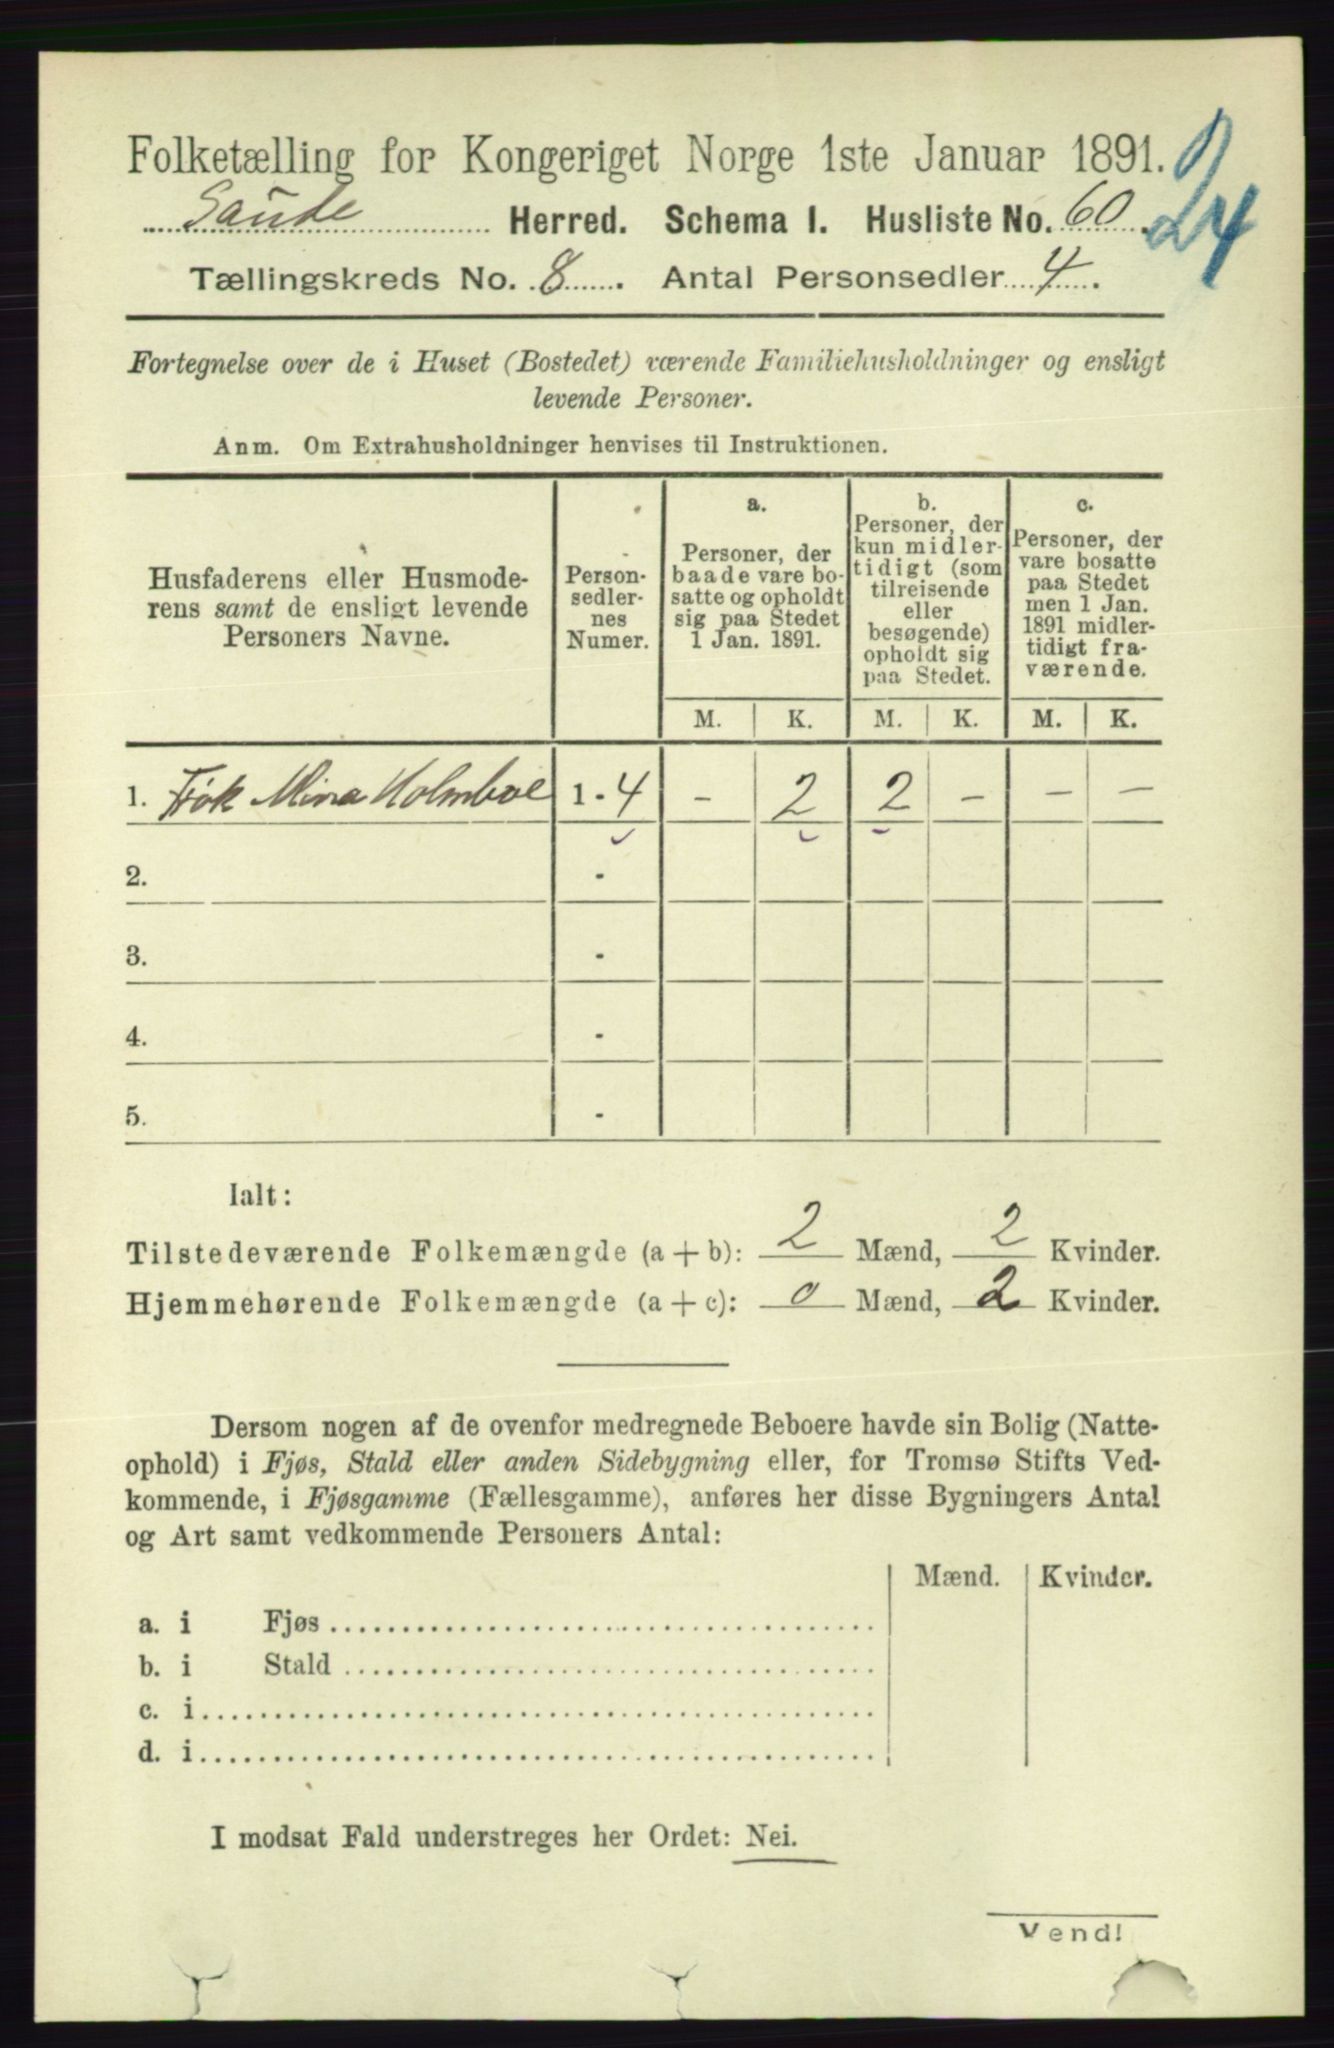 Folketælling for Kongeriget Norge 1ste Januar 1891.
Saude Herred. Schema I. Husliste No. 60.
24
Tællingskreds No. 8. Antal Personsedler 4.
Fortegnelse over de i Huset (Bostedet) værende Familiehusholdninger og ensligt
levende Personer.
Anm. Om Extrahusholdninger henvises til Instruktionen.
Husfaderens eller Husmode-
rens samt de ensligt levende
Personers Navne.
Person-
sedler-
nes
Numer.
a.
Personer, der
baade vare bo-
satte og opholdt
sig paa Stedet
1 Jan. 1891.
b.
Personer, der
kun midler-
tidigt (som
tilreisende
eller
besøgende)
opholdt sig
paa Stedet.
c.
Personer, der
vare bosatte
paa Stedet
men 1 Jan.
1891 midler-
tidigt fra-
værende.
M. K. M. K. M. K.
1. Frøk Mina Holmboe 1 - 4 - 2 2 - - -
2. -
3. -
4. -
5. -
Ialt:
Tilstedeværende Folkemængde (a + b): 2 Mænd, 2 Kvinder.
Hjemmehørende Folkemængde (a + c): 0 Mænd, 2 Kvinder.
Dersom nogen af de ovenfor medregnede Beboere havde sin Bolig (Natte-
ophold) i Fjøs, Stald eller anden Sidebygning eller, for Tromsø Stifts Ved-
kommende, i Fjøsgamme (Fællesgamme), anføres her disse Bygningers Antal
og Art samt vedkommende Personers Antal:
Mænd. Kvinder.
a. i Fjøs
b. i Stald
c. i
d. i
I modsat Fald understreges her Ordet: Nei.
Vend!